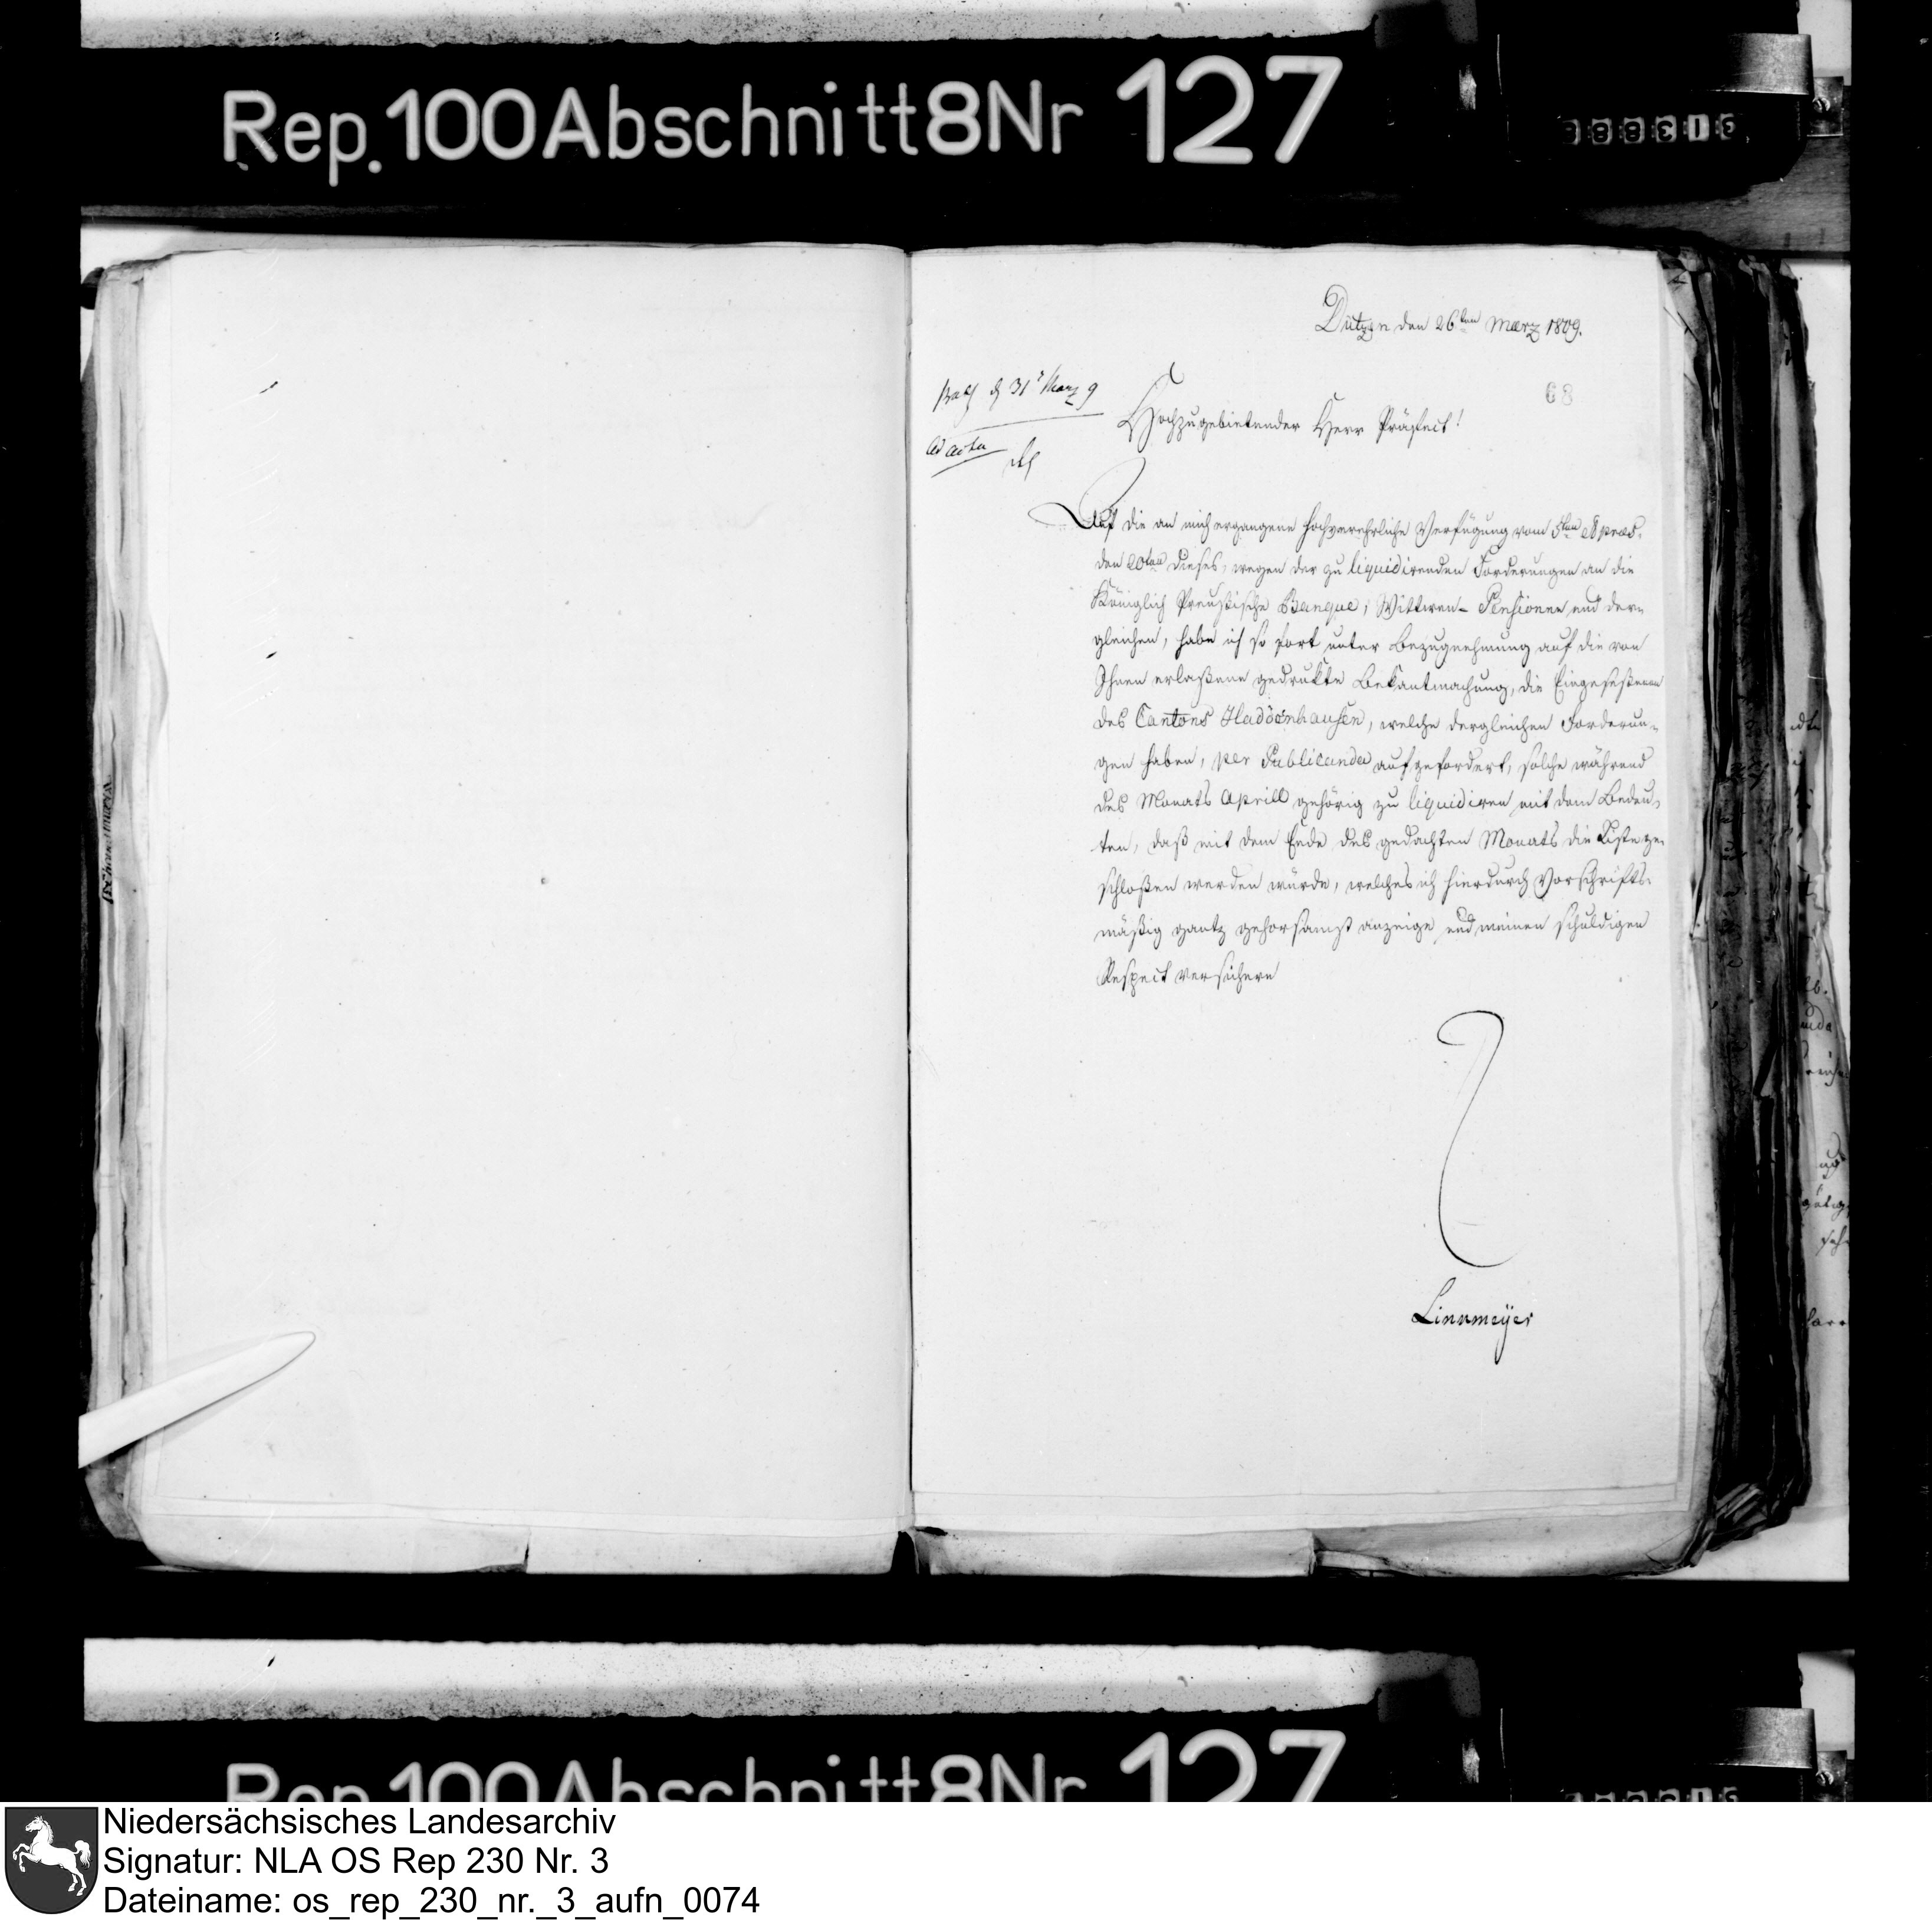 Rep. 100 Abschnitt 8 Nr 127
Dützen den 26ten März 1809.
68
d 31t März 9
ad acta
Hochzugebietender Herr Präfect!
Auf die an mich ergangene hochverehrliche Verfügung vom 5ten et praes.
den 20ten dieses, wegen der zu liquidirenden Forderungen an die
Königlich Preußische Banque, Wittwen-Pensionen und der-
gleichen, habe ich so fort unter Bezugnehmung auf die von
Ihnen erlaßene gedrukte Bekantmachung, die Eingeseßenen
des Cantons Haddenhausen, welche dergleichen Forderun-
gen haben, per Publicanda aufgefordert, solche während
des Monats Aprill gehörig zu liquidiren mit dem Bedeu-
ten, daß mit dem Ende des gedachten Monats die Liste ge-
schloßen werden würde, welches ich hierdurch Vorschrifts-
mäßig gantz gehorsamst anzeige und meinen schuldigen
Respect versichere
Linnmeÿer
Rep. 100 Abschnitt 8 Nr 127
Niedersächsisches Landesarchiv
Signatur: NLA OS Rep 230 Nr. 3
Dateiname: os_rep_230_nr._3_aufn_0074